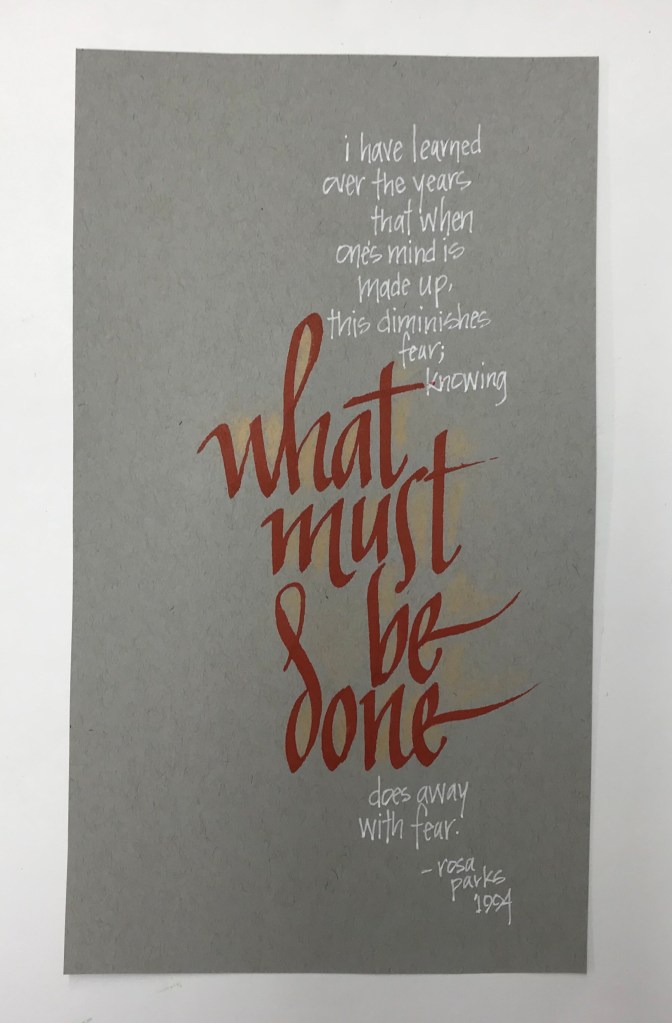 i have learned
over the years
that when
one's mind is
made up,
this diminishes
fear;
knowing
what
must
be
done
does away
with fear.
- rosa
parks
1994